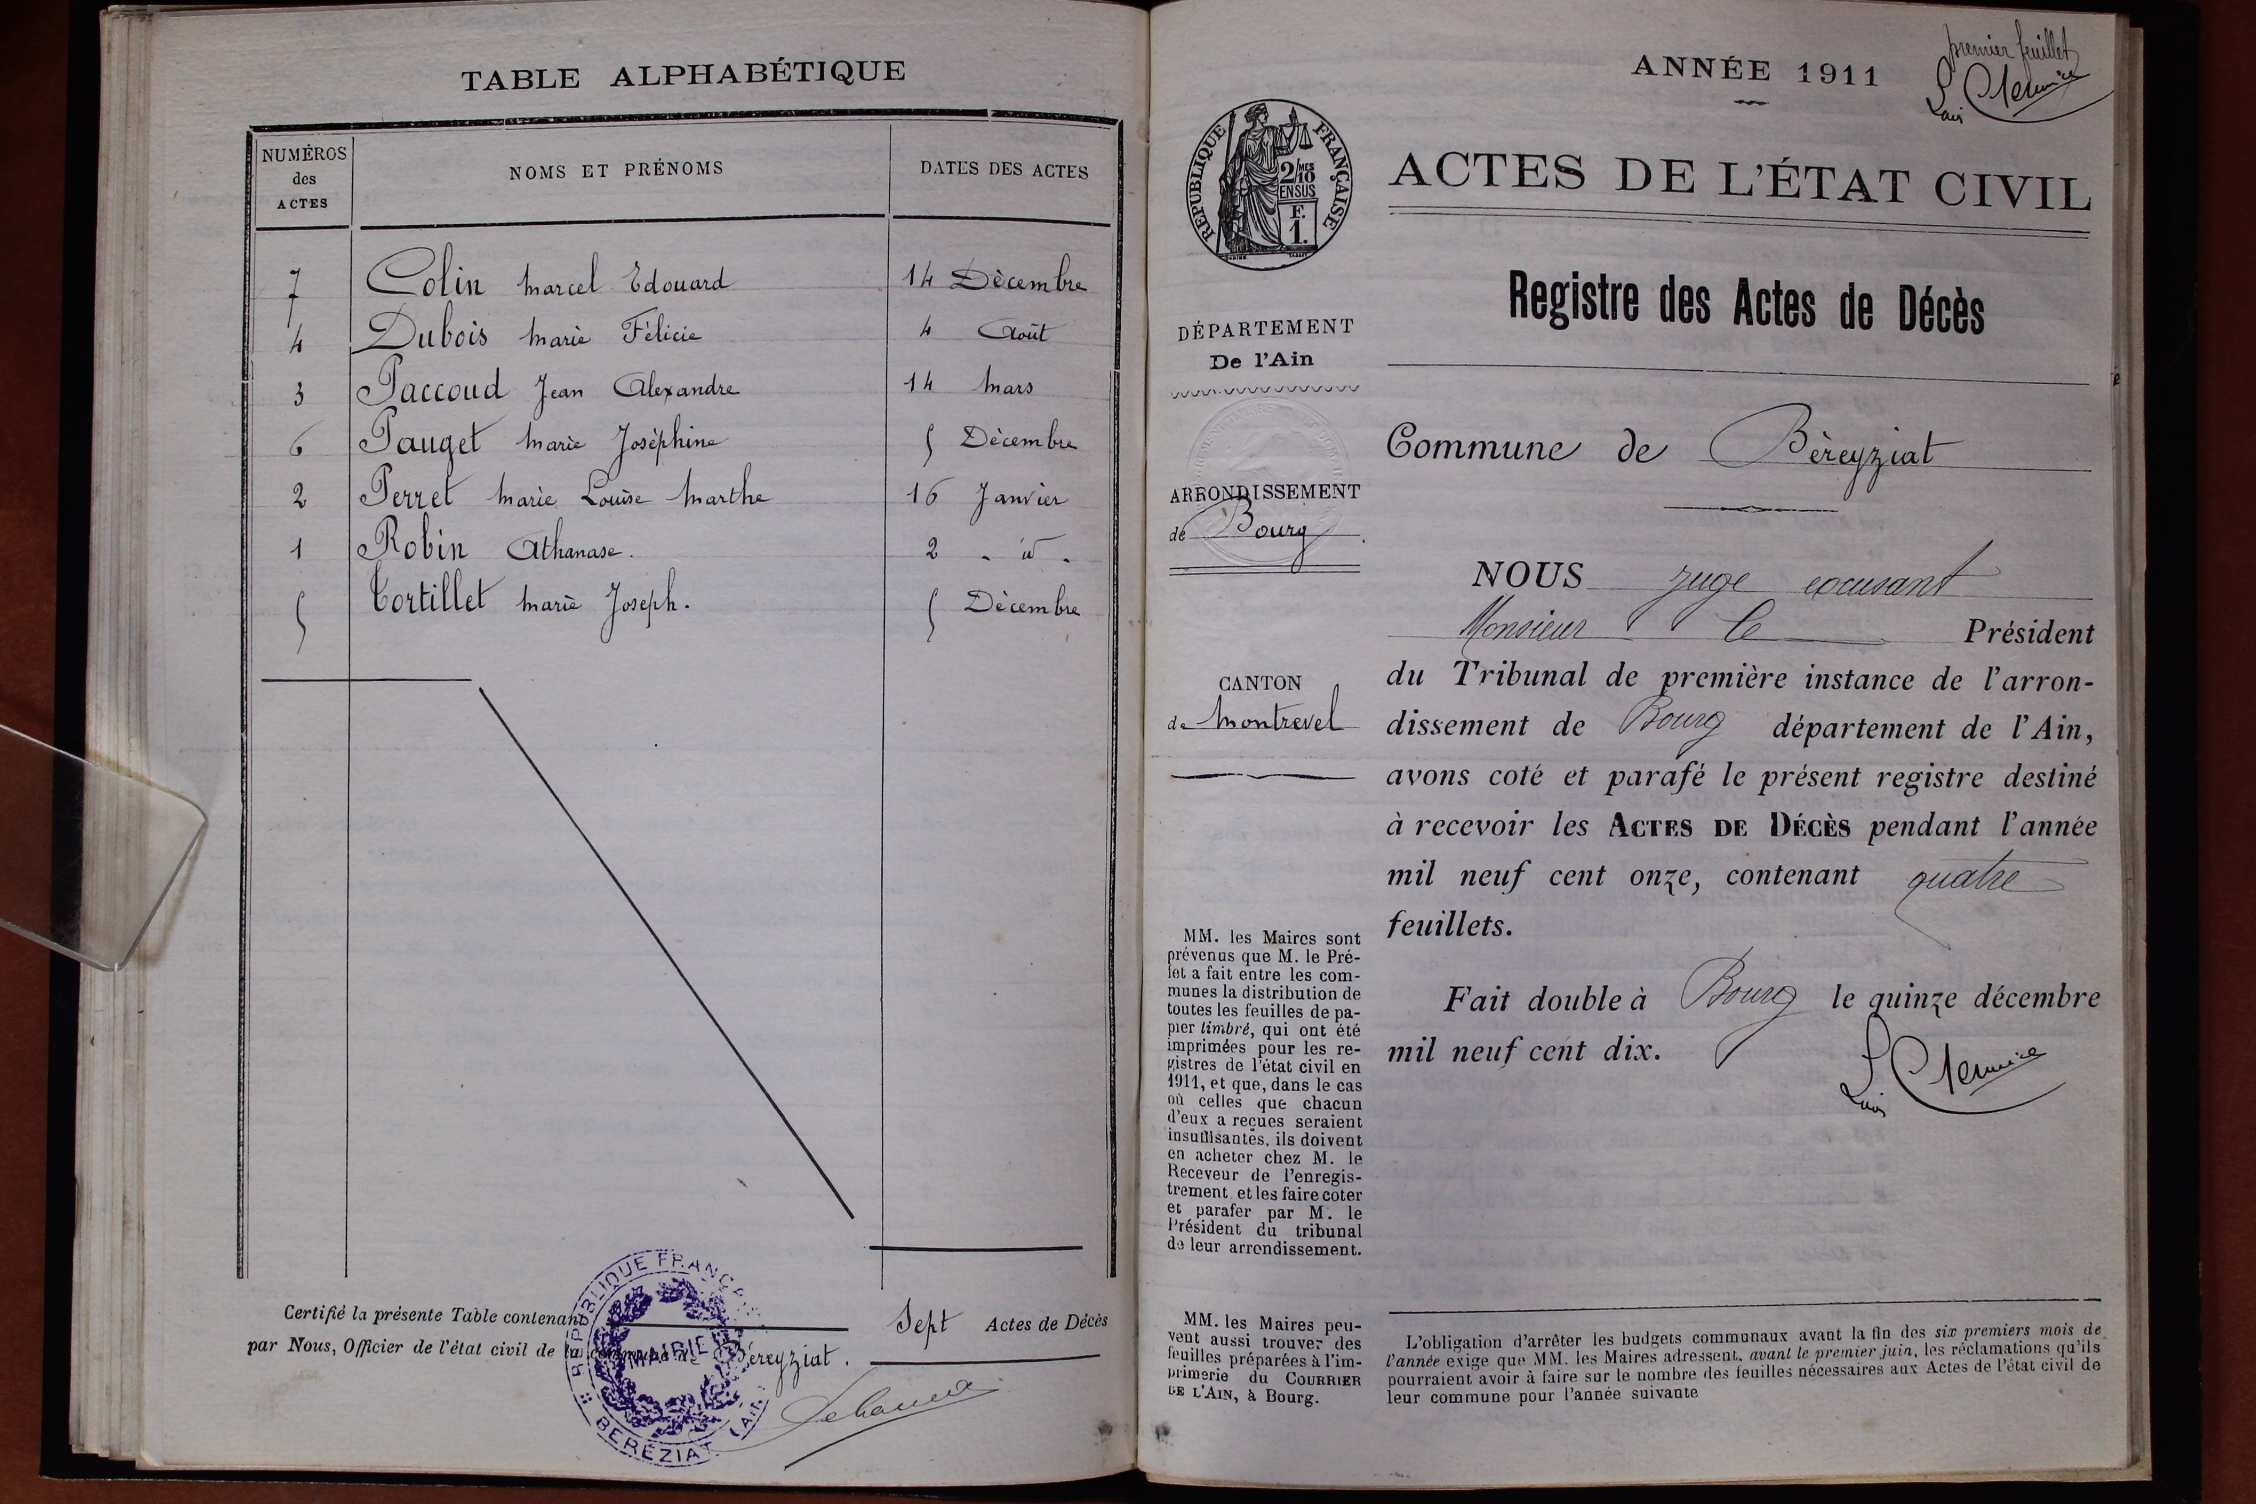 TABLE ALPHABÉTIQUE
NUMÉROS
des
ACTES
NOMS ET PRÉNOMS
DATES DES ACTES
7 Colin Marcel Edouard 14 Décembre
4 Dubois Marie Félicie 4 Août
3 Paccoud Jean Alexandre 14 Mars
6 Pauget Marie Joséphine 5 Décembre
2 Perret Marie Louise Marthe 16 Janvier
1 Robin Athanase. 2 - id -
5 Tortillet Marie Joseph. 5 Décembre
Certifié la présente Table contenant Sept Actes de Décès
par Nous, Officier de l'état civil de la commune de Béreyziat.
RÉPUBLIQUE FRANÇAISE
MAIRIE
BERÉZIAT (AIN)
premier feuillet
ANNÉE 1911
RÉPUBLIQUE FRANÇAISE
2/10 MES
EN SUS
F.
1.
ACTES DE L'ÉTAT CIVIL
Registre des Actes de Décès
DÉPARTEMENT
De l'Ain
ARRONDISSEMENT
de Bourg
CANTON
de Montrevel
MM. les Maires sont
prévenus que M. le Pré-
fet a fait entre les com-
munes la distribution de
toutes les feuilles de pa-
pier timbré, qui ont été
imprimées pour les re-
gistres de l'état civil en
1911, et que, dans le cas
où celles que chacun
d'eux a reçues seraient
insuffisantes, ils doivent
en acheter chez M. le
Receveur de l'enregis-
trement et les faire coter
et parafer par M. le
Président du tribunal
de leur arrondissement.
MM. les Maires peu-
vent aussi trouver des
feuilles préparées à l'im-
primerie du COURRIER
DE L'AIN, à Bourg.
Commune de Béreyziat
NOUS juge excusant
Monsieur le Président
du Tribunal de première instance de l'arron-
dissement de Bourg département de l'Ain,
avons coté et parafé le présent registre destiné
à recevoir les ACTES DE DÉCÈS pendant l'année
mil neuf cent onze, contenant quatre
feuillets.
Fait double à Bourg le quinze décembre
mil neuf cent dix.
L'obligation d'arrêter les budgets communaux avant la fin des six premiers mois de
l'année exige que MM. les Maires adressent, avant le premier juin, les réclamations qu'ils
pourraient avoir à faire sur le nombre des feuilles nécessaires aux Actes de l'état civil de
leur commune pour l'année suivante